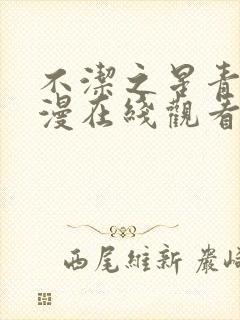 不潔之果青
漫在綫觀看
西尾維新 巖崎